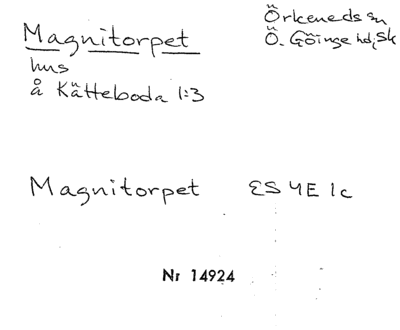 Magnitorpet
hus
å Kätteboda 1:3
Örkeneds sn
Ö. Göinge hd, Sk
Magnitorpet ES 4E 1c
Nr 14924